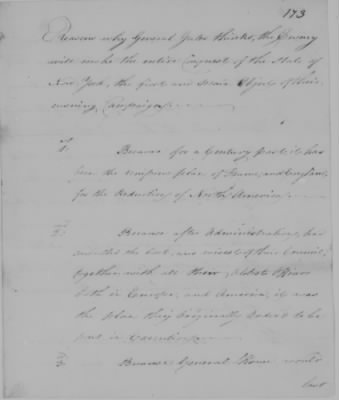 173
Reasons why General Gates thinks, the Enemy
will make the entire Conquest of the State of
New York, the first and main Object of their
ensuing Campaign.
1st. Because for a Century past, it has
been the uniform plan of France, and England,
for the Reduction of North America.
2d. Because after Administration, has
the best, and wisest of their Council,
together with all their
both in Europe, and America, it was
the plan they originally to be
put in Execution.
3d. Because General Howe would
last